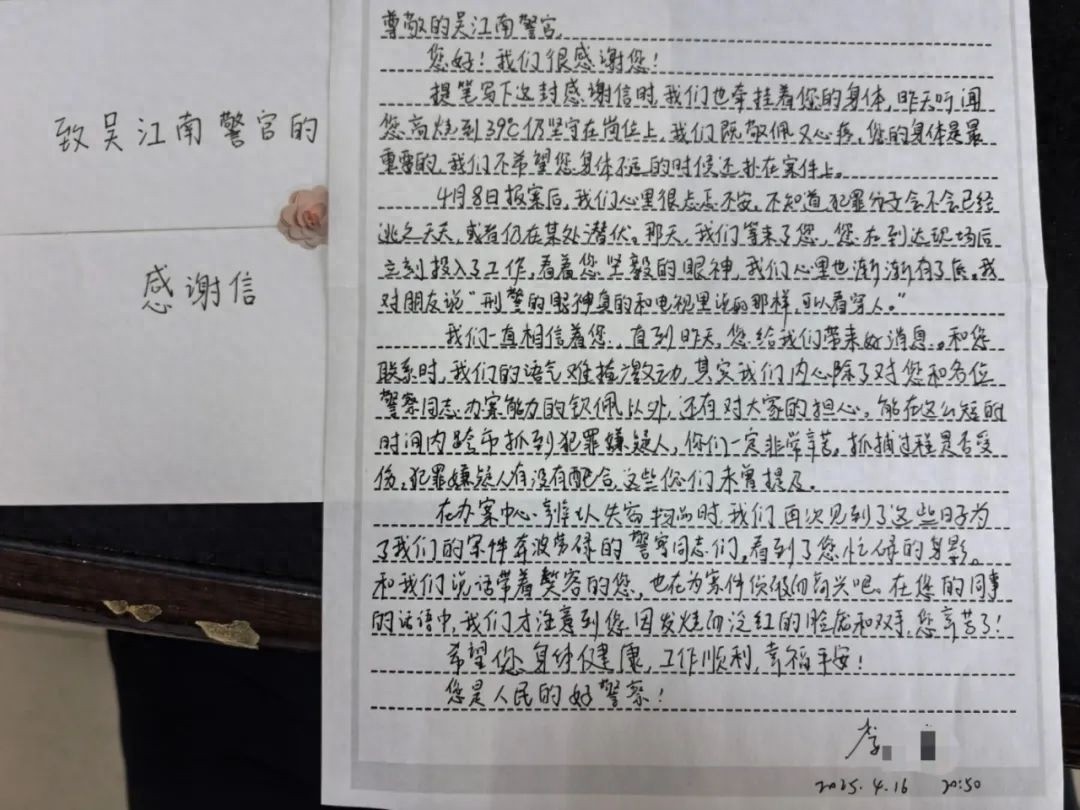 致吴江南警官的
感谢信
尊敬的吴江南警官,
您好!我们很感谢您!
提笔写下这封感谢信时,我们也牵挂着您的身体,昨天听闻
您高烧到39℃仍坚守在岗位上,我们既敬佩又心疼,您的身体是最
重要的,我们不希望您身体不适的时候还扑在案件上。
4月8日报案后,我们心里很忐忑不安,不知道犯罪分子会不会已经
逃之夭夭,或者仍在某处潜伏。那天,我们等来了您,您在到达现场后
立刻投入了工作,看着您坚毅的眼神,我们心里也渐渐有了底。我
对朋友说“刑警的眼神真的和电视里说的那样,可以看穿人。”
我们一直相信着您,直到昨天,您给我们带来好消息。和您
联系时,我们的语气难掩激动,其实我们内心除了对您和各位
警察同志办案能力的钦佩以外,还有对大家的担心,能在这么短的
时间内跨市抓到犯罪嫌疑人,你们一定非常辛苦。抓捕过程是否受
伤,犯罪嫌疑人有没有配合,这些您们未曾提及。
在办案中心辨认失窃物品时,我们再次见到了这些日子为
了我们的案件奔波劳碌的警官同志们,看到了您忙碌的身影。
和我们说话带着笑容的您,也在为案件侦破而高兴吧。在您的同事
的话语中,我们才注意到您因发烧而泛红的脸庞和双手,您辛苦了!
希望您身体健康,工作顺利,幸福平安!
您是人民的好警察!
李
2025.4.16 20:50